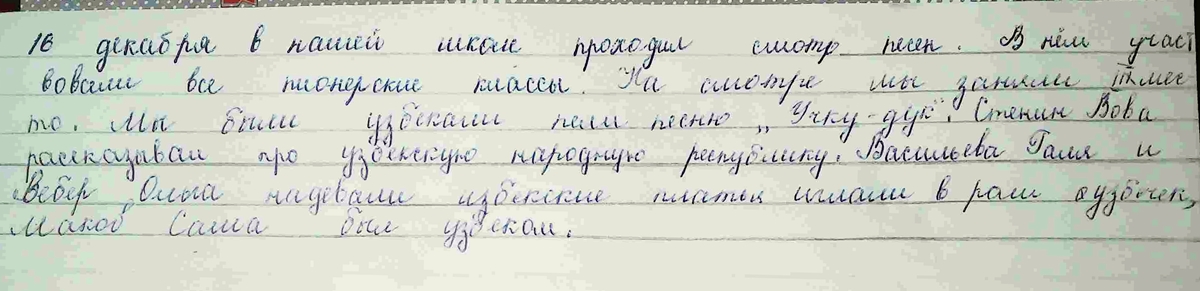 16 декабря в нашей школе проходил смотр песен. В нём участ
вовали все пионерские классы. На смотре мы заняли III мес
то. Мы были узбеками пели песню „Учку-дук". Стенин Вова
рассказывал про узбекскую народную республику. Васильева Галя и
Вебер Ольга надевали узбекские платья играли в роли узбечек,
Маков Саша был узбеком.